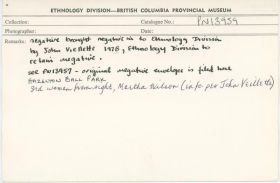 ETHNOLOGY DIVISION—BRITISH COLUMBIA PROVINCIAL MUSEUM
Collection: Catalogue No.: PN13959
Photographer: Date:
Remarks: negative brought negative in to Ethnology Division
by John Veillette 1978, Ethnology Division to
retain negative.
see PN13957 - original negative envelope is filed here
HAZELTON BALL PARK
3rd woman from right, Martha Wilson (info. per John Veillette)